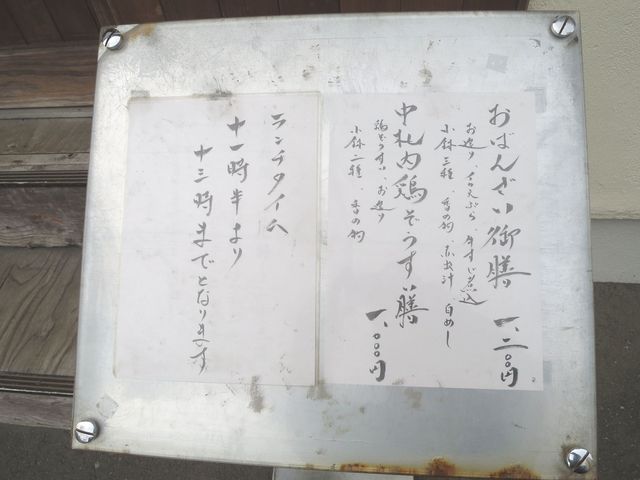 おばんざい御膳 一、二〇〇円
お造り、天ぷら 牛すじ煮込
小鉢三種、香の物、赤出汁 白めし
中札内鶏ぞうすい膳 一、〇〇〇円
鶏ぞうすい、お造り
小鉢二種、香の物
ランチタイム
十一時半より
十三時までとなります